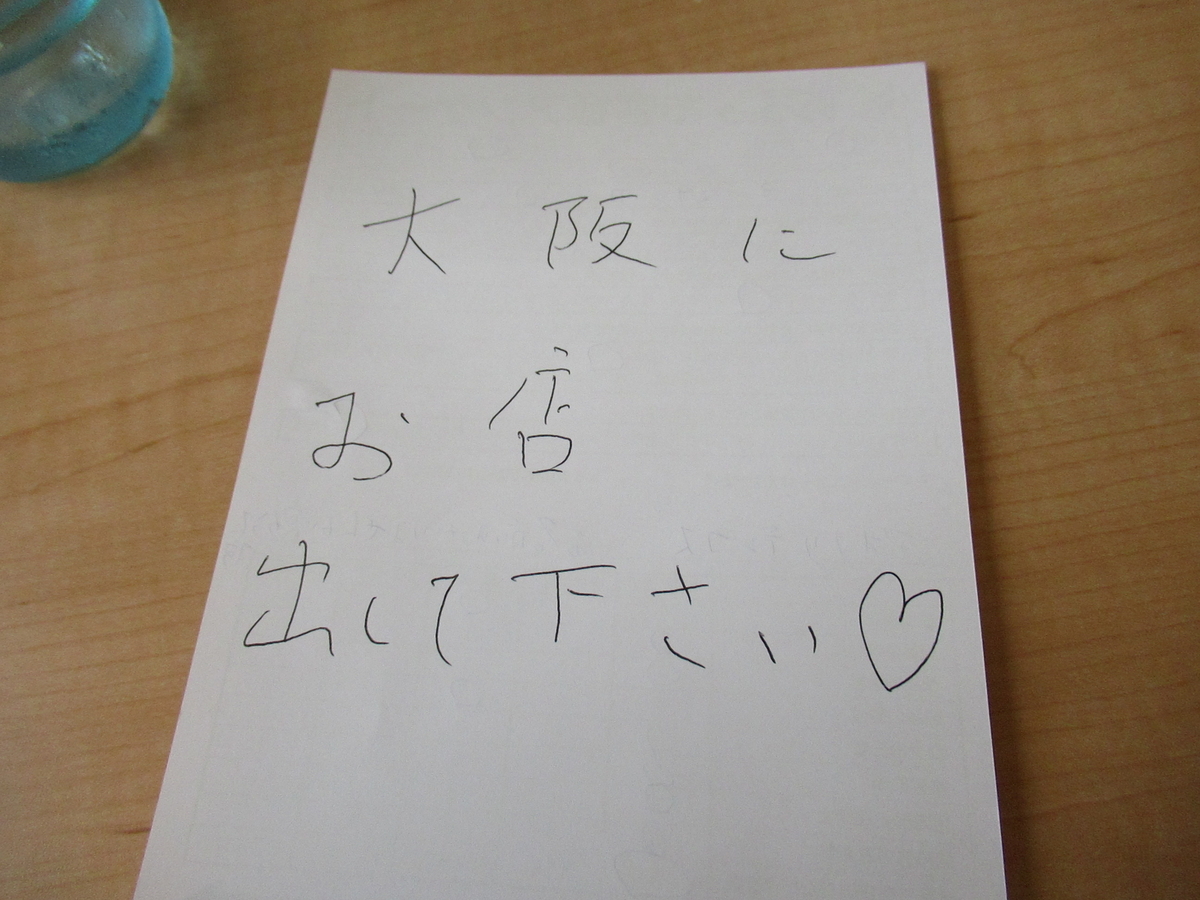 大阪に
お店
出して下さい♡